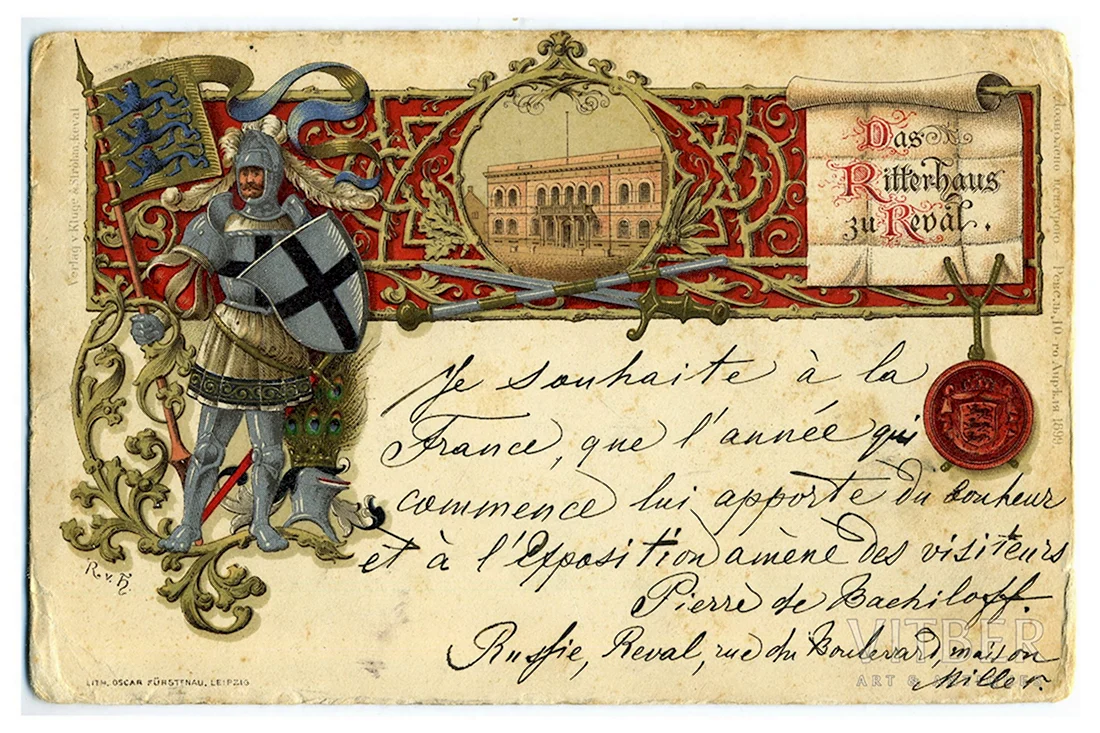 Das
Ritterhaus
zu Reval.
Verlag v. Kluge & Ströhm, Reval
Дозволено цензурою – Ревель, 10-го Апрѣля 1899
Je souhaite à la
France, que l'année qui
commence lui apporte du bonheur
et à l'Exposition amène des visiteurs
Pierre de Bachiloff.
Russie, Reval, rue du Boulevard, maison
Miller.
R. v. H.
LITH. OSCAR FÜRSTENAU, LEIPZIG
VITBER